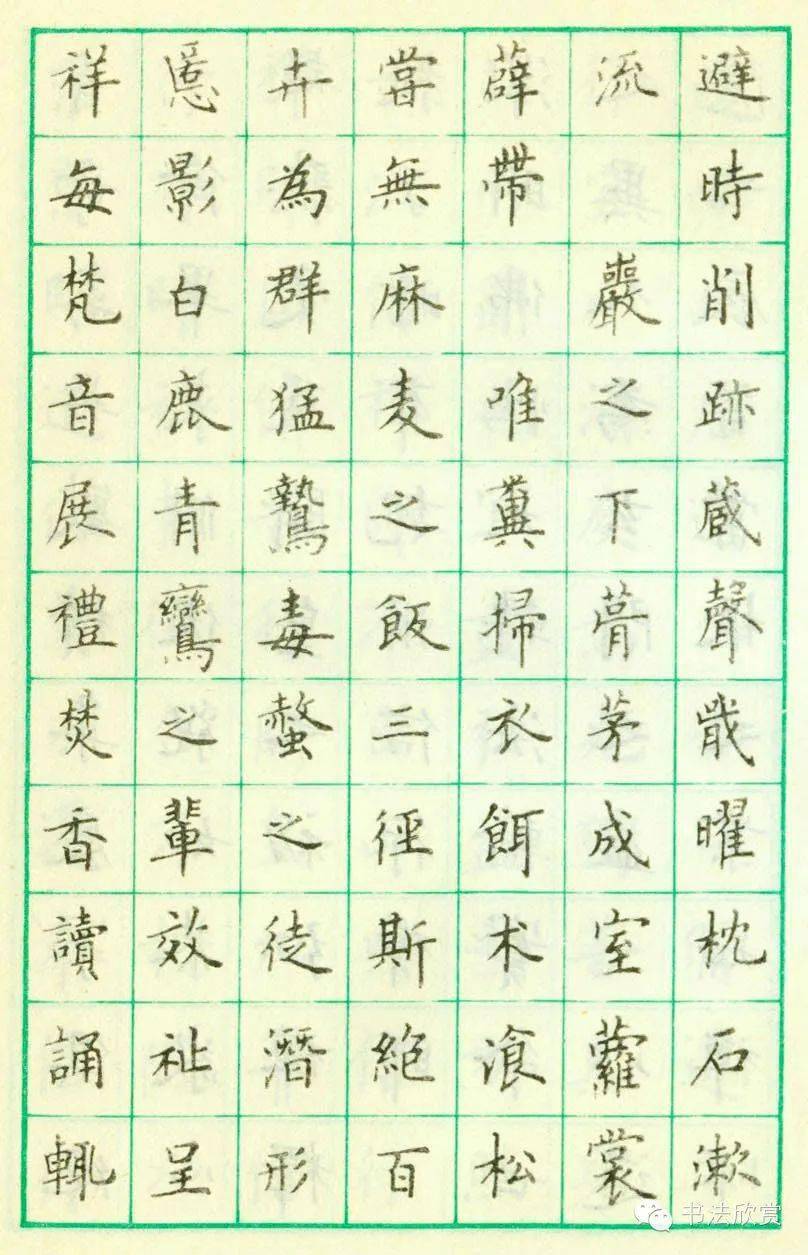 避時削跡藏聲戢曜枕石漱
流嚴之下葺茅成室蘿裳
薜帶唯糞掃衣餌术飡松
嘗無麻麦之飯三徑斯絕百
卉為群猛鷙毒螫之徒潛形
慝影白鹿青鸞之輩效祉呈
祥每梵音展禮焚香讀誦輒
书法欣赏